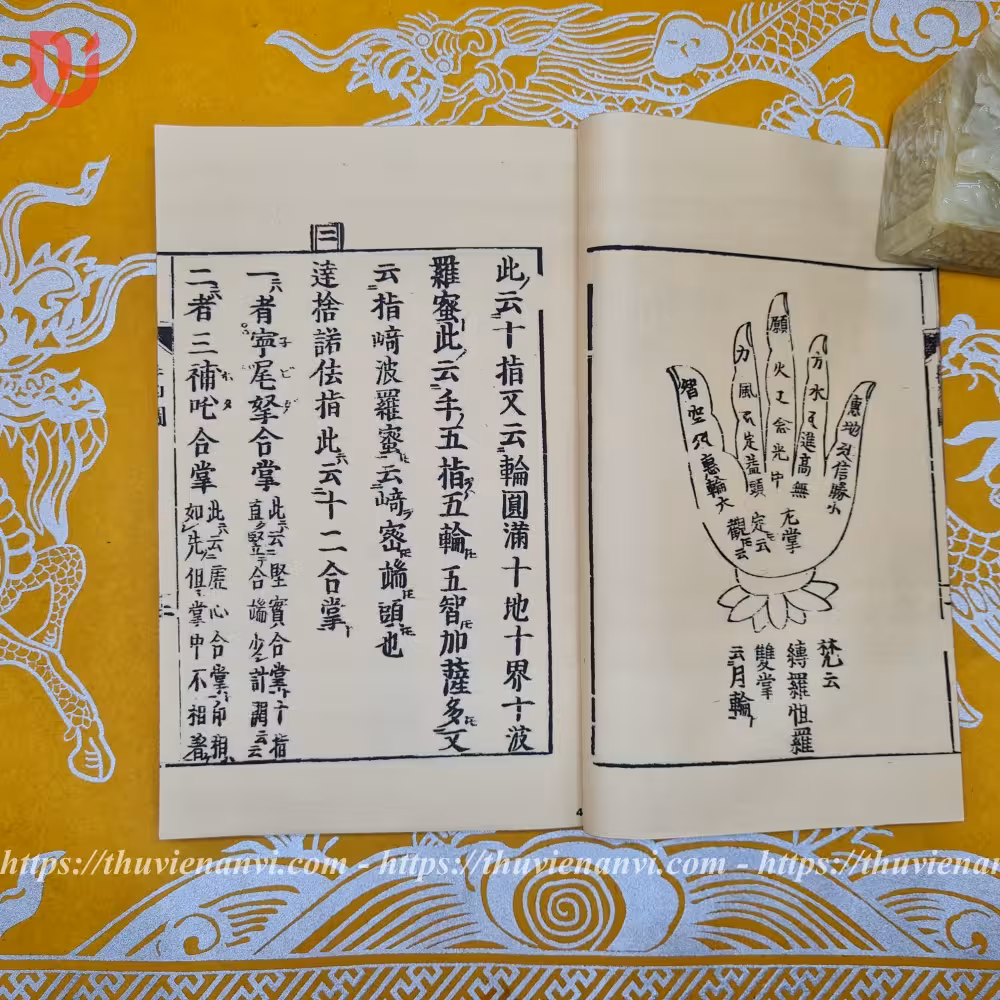 惠地信勝小
方水進高無
願火念光中
力風定蓋頭
智空惠輪大
掌
定云
觀云
梵云
縛羅怛羅
雙掌
云月輪
此云十指又云輪圓滿十地十界十波
羅蜜此云手五指五輪五智加薩多又
云指﨑波羅蜜云﨑密端頭也
三
達捨諾佉指此云十二合掌
一者寧尾拏合掌
此云堅實合掌十指
直竪合端少計開云云
二者三補吒合掌
此云虛心合掌印相
如先但掌中不相着
4
https://thuvienanvi.com - https://thuvienanvi.com - https://thuvienanvi.com - https://thuvienanvi